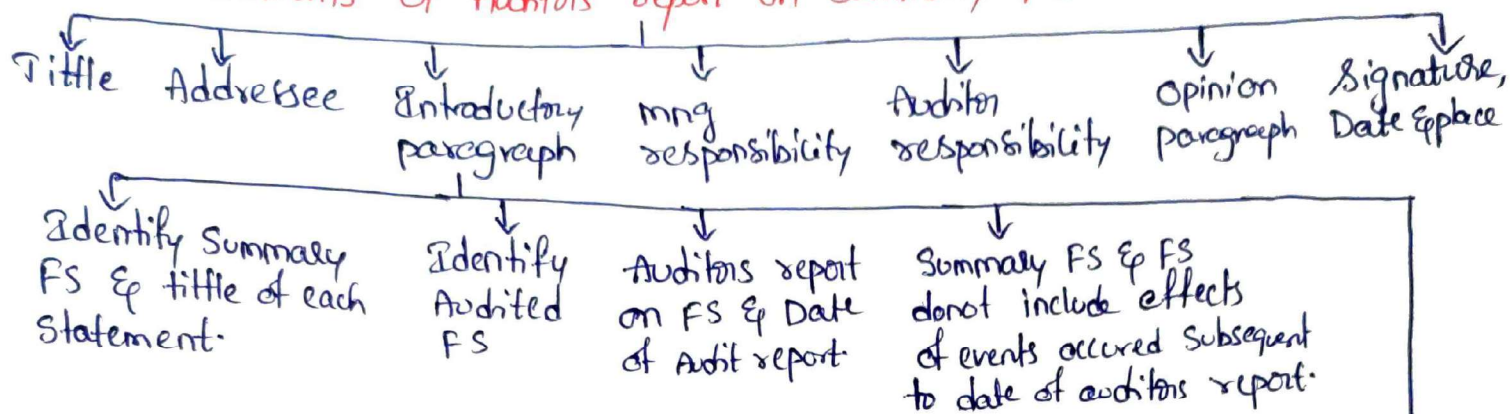 of Auditors report on
Tittle
Addressee
Introductory
paragraph
mng
responsibility
Auditor
responsibility
Opinion
paragraph
Signature,
Date & place
Identify Summary
FS & tittle of each
Statement.
Identify
Audited
FS
Auditors report
on FS & Date
of Audit report.
Summary FS & FS
donot include effects
of events occured Subsequent
to date of auditors report.